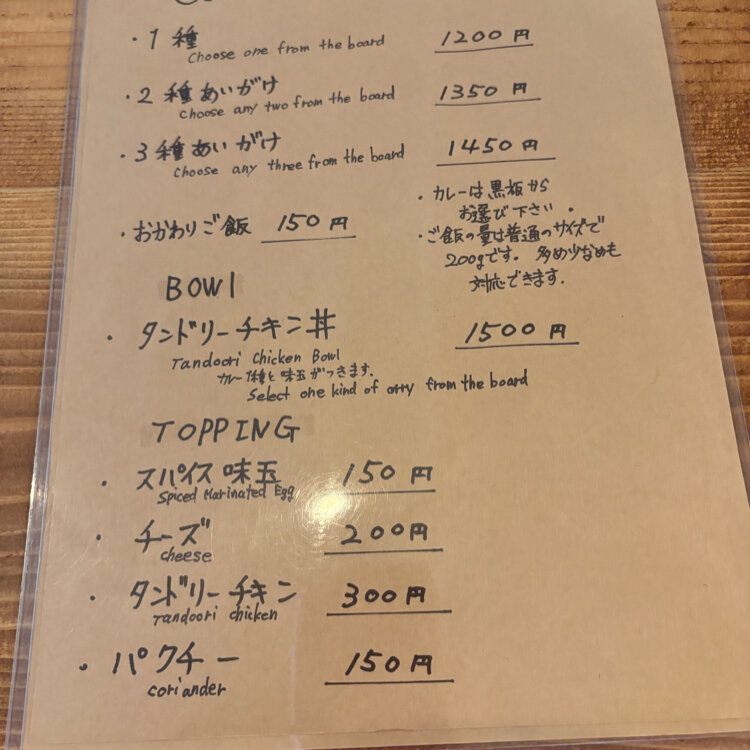 ・1種 1200円
Choose one from the board
・2種あいがけ 1350円
Choose any two from the board
・3種あいがけ 1450円
Choose any three from the board
・カレーは黒板から
お選び下さい。
・おかわりご飯 150円
・ご飯の量は普通のサイズで
200gです。多め少なめも
対応できます.
BOWl
・タンドリーチキン丼 1500円
Tandoori Chicken Bowl
カレー1種と味玉がつきます.
Select one kind of from the board
TOPPING
・スパイス味玉 150円
Spiced Marinated Egg
・チーズ 200円
cheese
・タンドリーチキン 300円
Tandoori chicken
・パクチー 150円
coriander